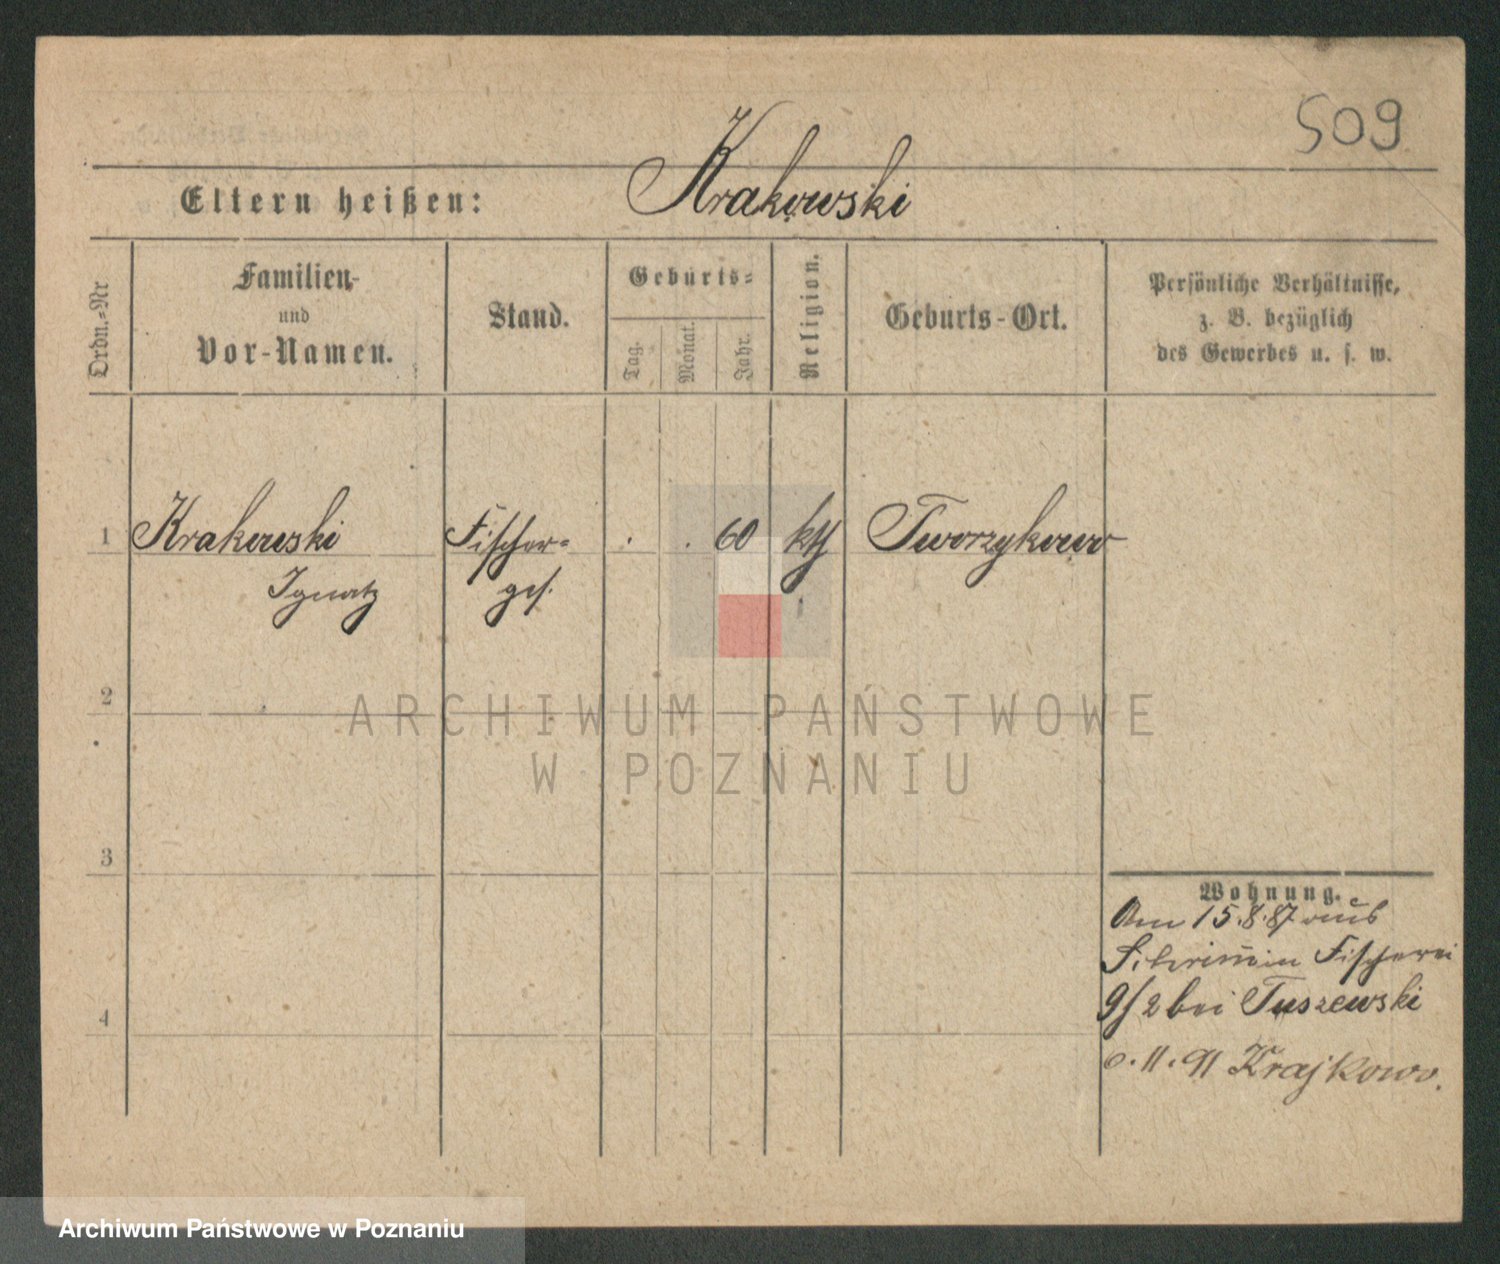 509
Eltern heißen: Krakowski
Ordn.=Nr
Familien-
und
Vor-Namen.
Stand.
Geburts=
Tag.
Monat.
Jahr.
Religion.
Geburts-Ort.
Persönliche Verhältnisse,
z. B. bezüglich
des Gewerbes u. s. w.
1 Krakowski Fischer= . . 60 kth Tworzykowo
Ignatz ges.
2
ARCHIWUM PAŃSTWOWE
W POZNANIU
3
4
Wohnung.
Am 15.8.87 aus
Fischerei
9/2 bei Tuszewski
o. 11. 91 Krajkowo.
Archiwum Państwowe w Poznaniu